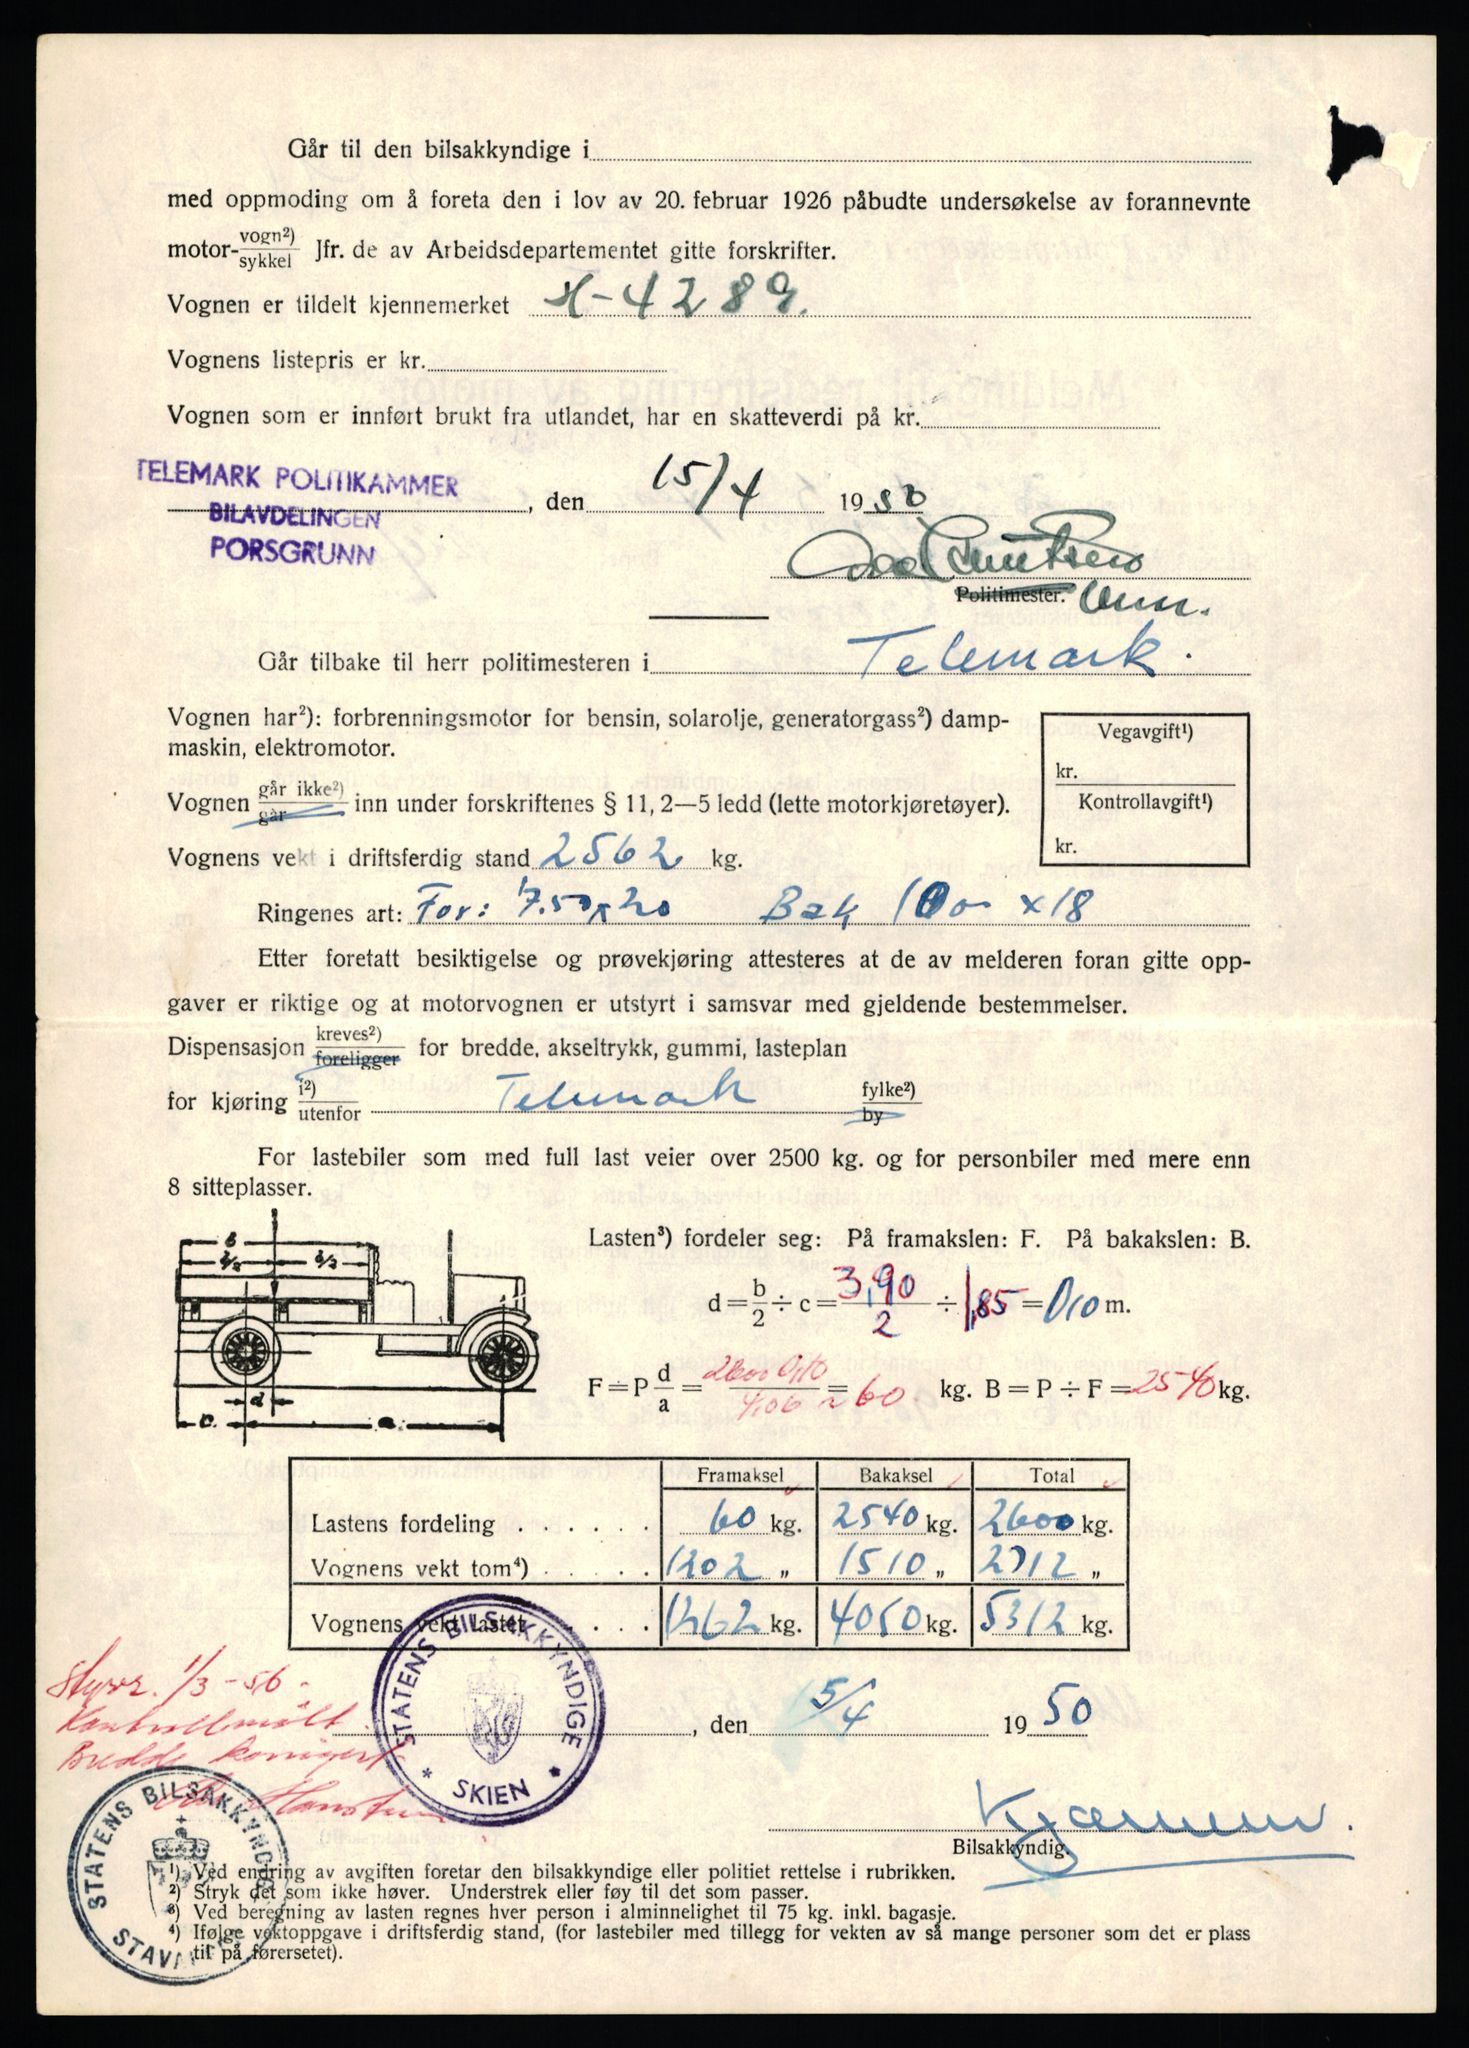 Går til den bilsakkyndige i
med oppmoding om å foreta den i lov av 20. februar 1926 påbudte undersøkelse av forannevnte
motor-vogn²)/sykkel Jfr. de av Arbeidsdepartementet gitte forskrifter.
Vognen er tildelt kjennemerket H-4289.
Vognens listepris er kr.
Vognen som er innført brukt fra utlandet, har en skatteverdi på kr.
TELEMARK POLITIKAMMER
BILAVDELINGEN
PORSGRUNN
, den 15/4 1950
Politimester.
Går tilbake til herr politimesteren i Telemark.
Vognen har²): forbrenningsmotor for bensin, solarolje, generatorgass²) damp-
maskin, elektromotor.
Vegavgift¹)
kr.
Kontrollavgift¹)
kr.
Vognen går ikke²)/går inn under forskriftenes § 11, 2—5 ledd (lette motorkjøretøyer).
Vognens vekt i driftsferdig stand 2562 kg.
Ringenes art: For: 7.50x20 Bak 1000 x18
Etter foretatt besiktigelse og prøvekjøring attesteres at de av melderen foran gitte opp-
gaver er riktige og at motorvognen er utstyrt i samsvar med gjeldende bestemmelser.
Dispensasjon kreves²)/foreligger for bredde, akseltrykk, gummi, lasteplan
for kjøring i²)/utenfor Telemark fylke²)/by
For lastebiler som med full last veier over 2500 kg. og for personbiler med mere enn
8 sitteplasser.
b
b/2 b/2
c. d a
Lasten³) fordeler seg: På framakslen: F. På bakakslen: B.
d = b/2 ÷ c = 3,90/2 ÷ 1,85 = 0,10 m.
F = P d/a = 2600 0,10/4,06 = ~ 60 kg. B = P ÷ F = 2540 kg.
Framaksel Bakaksel Total
Lastens fordeling . . . . . . 60 kg. 2540 kg. 2600 kg.
Vognens vekt tom⁴) . . . . . 1202 „ 1510 „ 2712 „
Vognens vekt lastet . . . . 1262 kg. 4050 kg. 5312 kg.
STATENS BILSAKKYNDIGE
* SKIEN *
1/3-56.
Kontrollmålt
Bredde
, den 5/4 1950
Bilsakkyndig.
STATENS BILSAKKYNDIGE
¹) Ved endring av avgiften foretar den bilsakkyndige eller politiet rettelse i rubrikken.
²) Stryk det som ikke høver. Understrek eller føy til det som passer.
³) Ved beregning av lasten regnes hver person i alminnelighet til 75 kg. inkl. bagasje.
⁴) Ifølge vektoppgave i driftsferdig stand, (for lastebiler med tillegg for vekten av så mange personer som det er plass
til på førersetet).